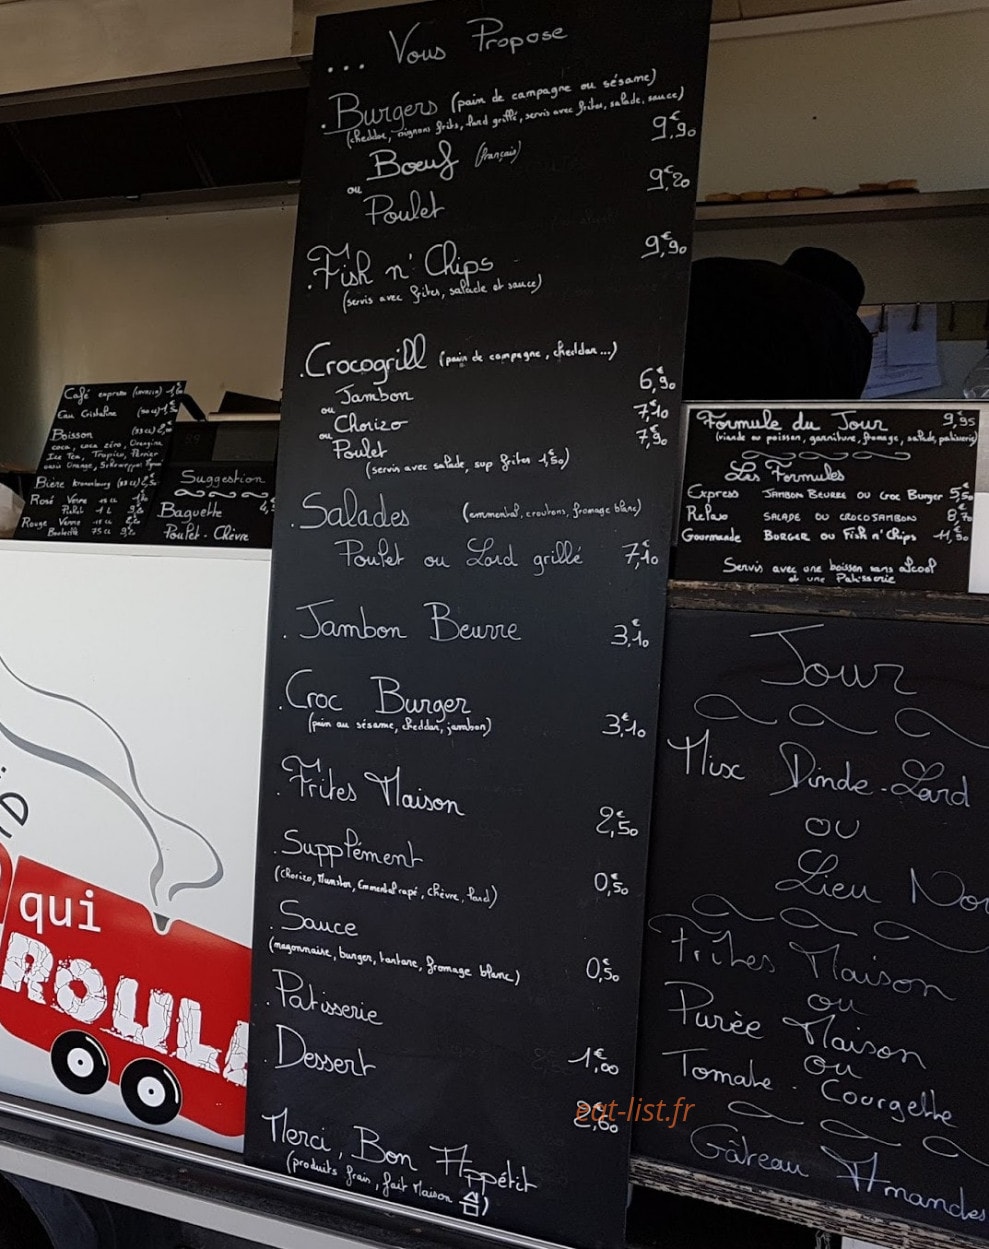 ... Vous Propose
. Burgers (pain de campagne ou sésame)
(cheddar, oignons frits, lard grillé, servis avec frites, salade, sauce)
Bœuf (français) 9€,90
ou
Poulet 9€,20
. Fish n' Chips 9€,90
(servis avec frites, salade et sauce)
. Crocogrill (pain de campagne, cheddar...)
Jambon 6€,90
ou
Chorizo 7€,10
ou
Poulet 7€,90
(servis avec salade, sup frites 1€,50)
. Salades (emmental, croutons, fromage blanc)
Poulet ou Lard grillé 7€,10
. Jambon Beurre 3€,10
. Croc Burger
(pain au sésame, cheddar, jambon) 3€,10
. Frites Maison 2€,50
. Supplément
(Chorizo, Munster, Emmental rapé, chèvre, lard) 0€,50
. Sauce
(mayonnaise, burger, tartare, fromage blanc) 0€,50
. Patisserie
. Dessert 1€,00
2€,60
Merci, Bon Appétit
(produits frais, fait Maison)
eat-list.fr
Café expresso
Eau Cristaline (50 cl)
Boisson (33 cl)
coca, coca zéro, Orangina
Ice Tea, Tropico, Perrier
oasis Orange,
Bière Kronenbourg
Rosé Verre
Pichet
Rouge Verre
Bouteille 75 cl
Suggestion
Baguette
Poulet - Chèvre
Formule du Jour 9,95
(viande ou poisson, garniture, fromage, salade, patisserie)
Les Formules
Express JAMBON BEURRE OU Croc Burger
Relax SALADE OU CROCOJAMBON
Gourmande BURGER OU Fish n' Chips
Servis avec une boisson sans alcool
et une Patisserie
Jour
Mix Dinde - Lard
ou
Lieu
Frites Maison
ou
Purée Maison
ou
Tomate - Courgette
Gâteau Amandes
qui
ROULE